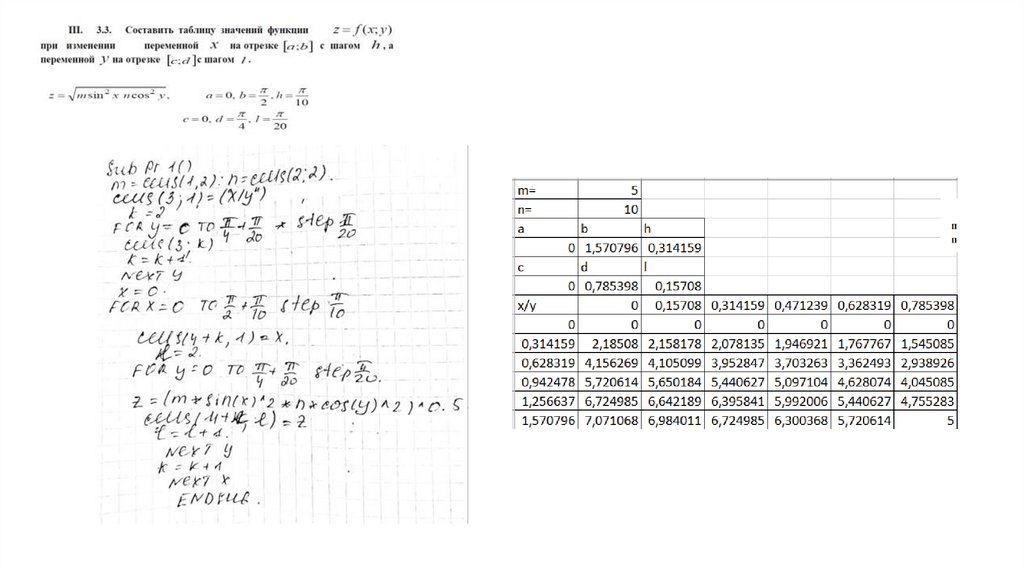 III. 3.3. Составить таблицу значений функции z = f(x; y)
при изменении переменной x на отрезке [a; b] с шагом h, а
переменной y на отрезке [c; d] с шагом l.
z = √(m sin² x n cos² y), a = 0, b = π/2, h = π/10
c = 0, d = π/4, l = π/20
Sub Pr 1()
m = cells(1,2): n = cells(2;2).
cells(3; 1) = (x/y")
k = 2
FOR y = 0 TO π/4 + π/20 * step π/20
cells(3; k)
k = k + 1
NEXT y
x = 0.
FOR x = 0 TO π/2 + π/10 step π/10
cells(4 + k, 1) = x.
= 2.
FOR y = 0 TO π/4 + π/20 step π/20.
z = (m * sin(x)^2 * n * cos(y)^2)^0.5
cells(4+k, l) = z
l = l + 1.
NEXT y
k = k + 1
NEXT x
END SUB.
m= 5
n= 10
a b h
0 1,570796 0,314159
c d l
0 0,785398 0,15708
x/y 0 0,15708 0,314159 0,471239 0,628319 0,785398
0 0 0 0 0 0 0
0,314159 2,18508 2,158178 2,078135 1,946921 1,767767 1,545085
0,628319 4,156269 4,105099 3,952847 3,703263 3,362493 2,938926
0,942478 5,720614 5,650184 5,440627 5,097104 4,628074 4,045085
1,256637 6,724985 6,642189 6,395841 5,992006 5,440627 4,755283
1,570796 7,071068 6,984011 6,724985 6,300368 5,720614 5